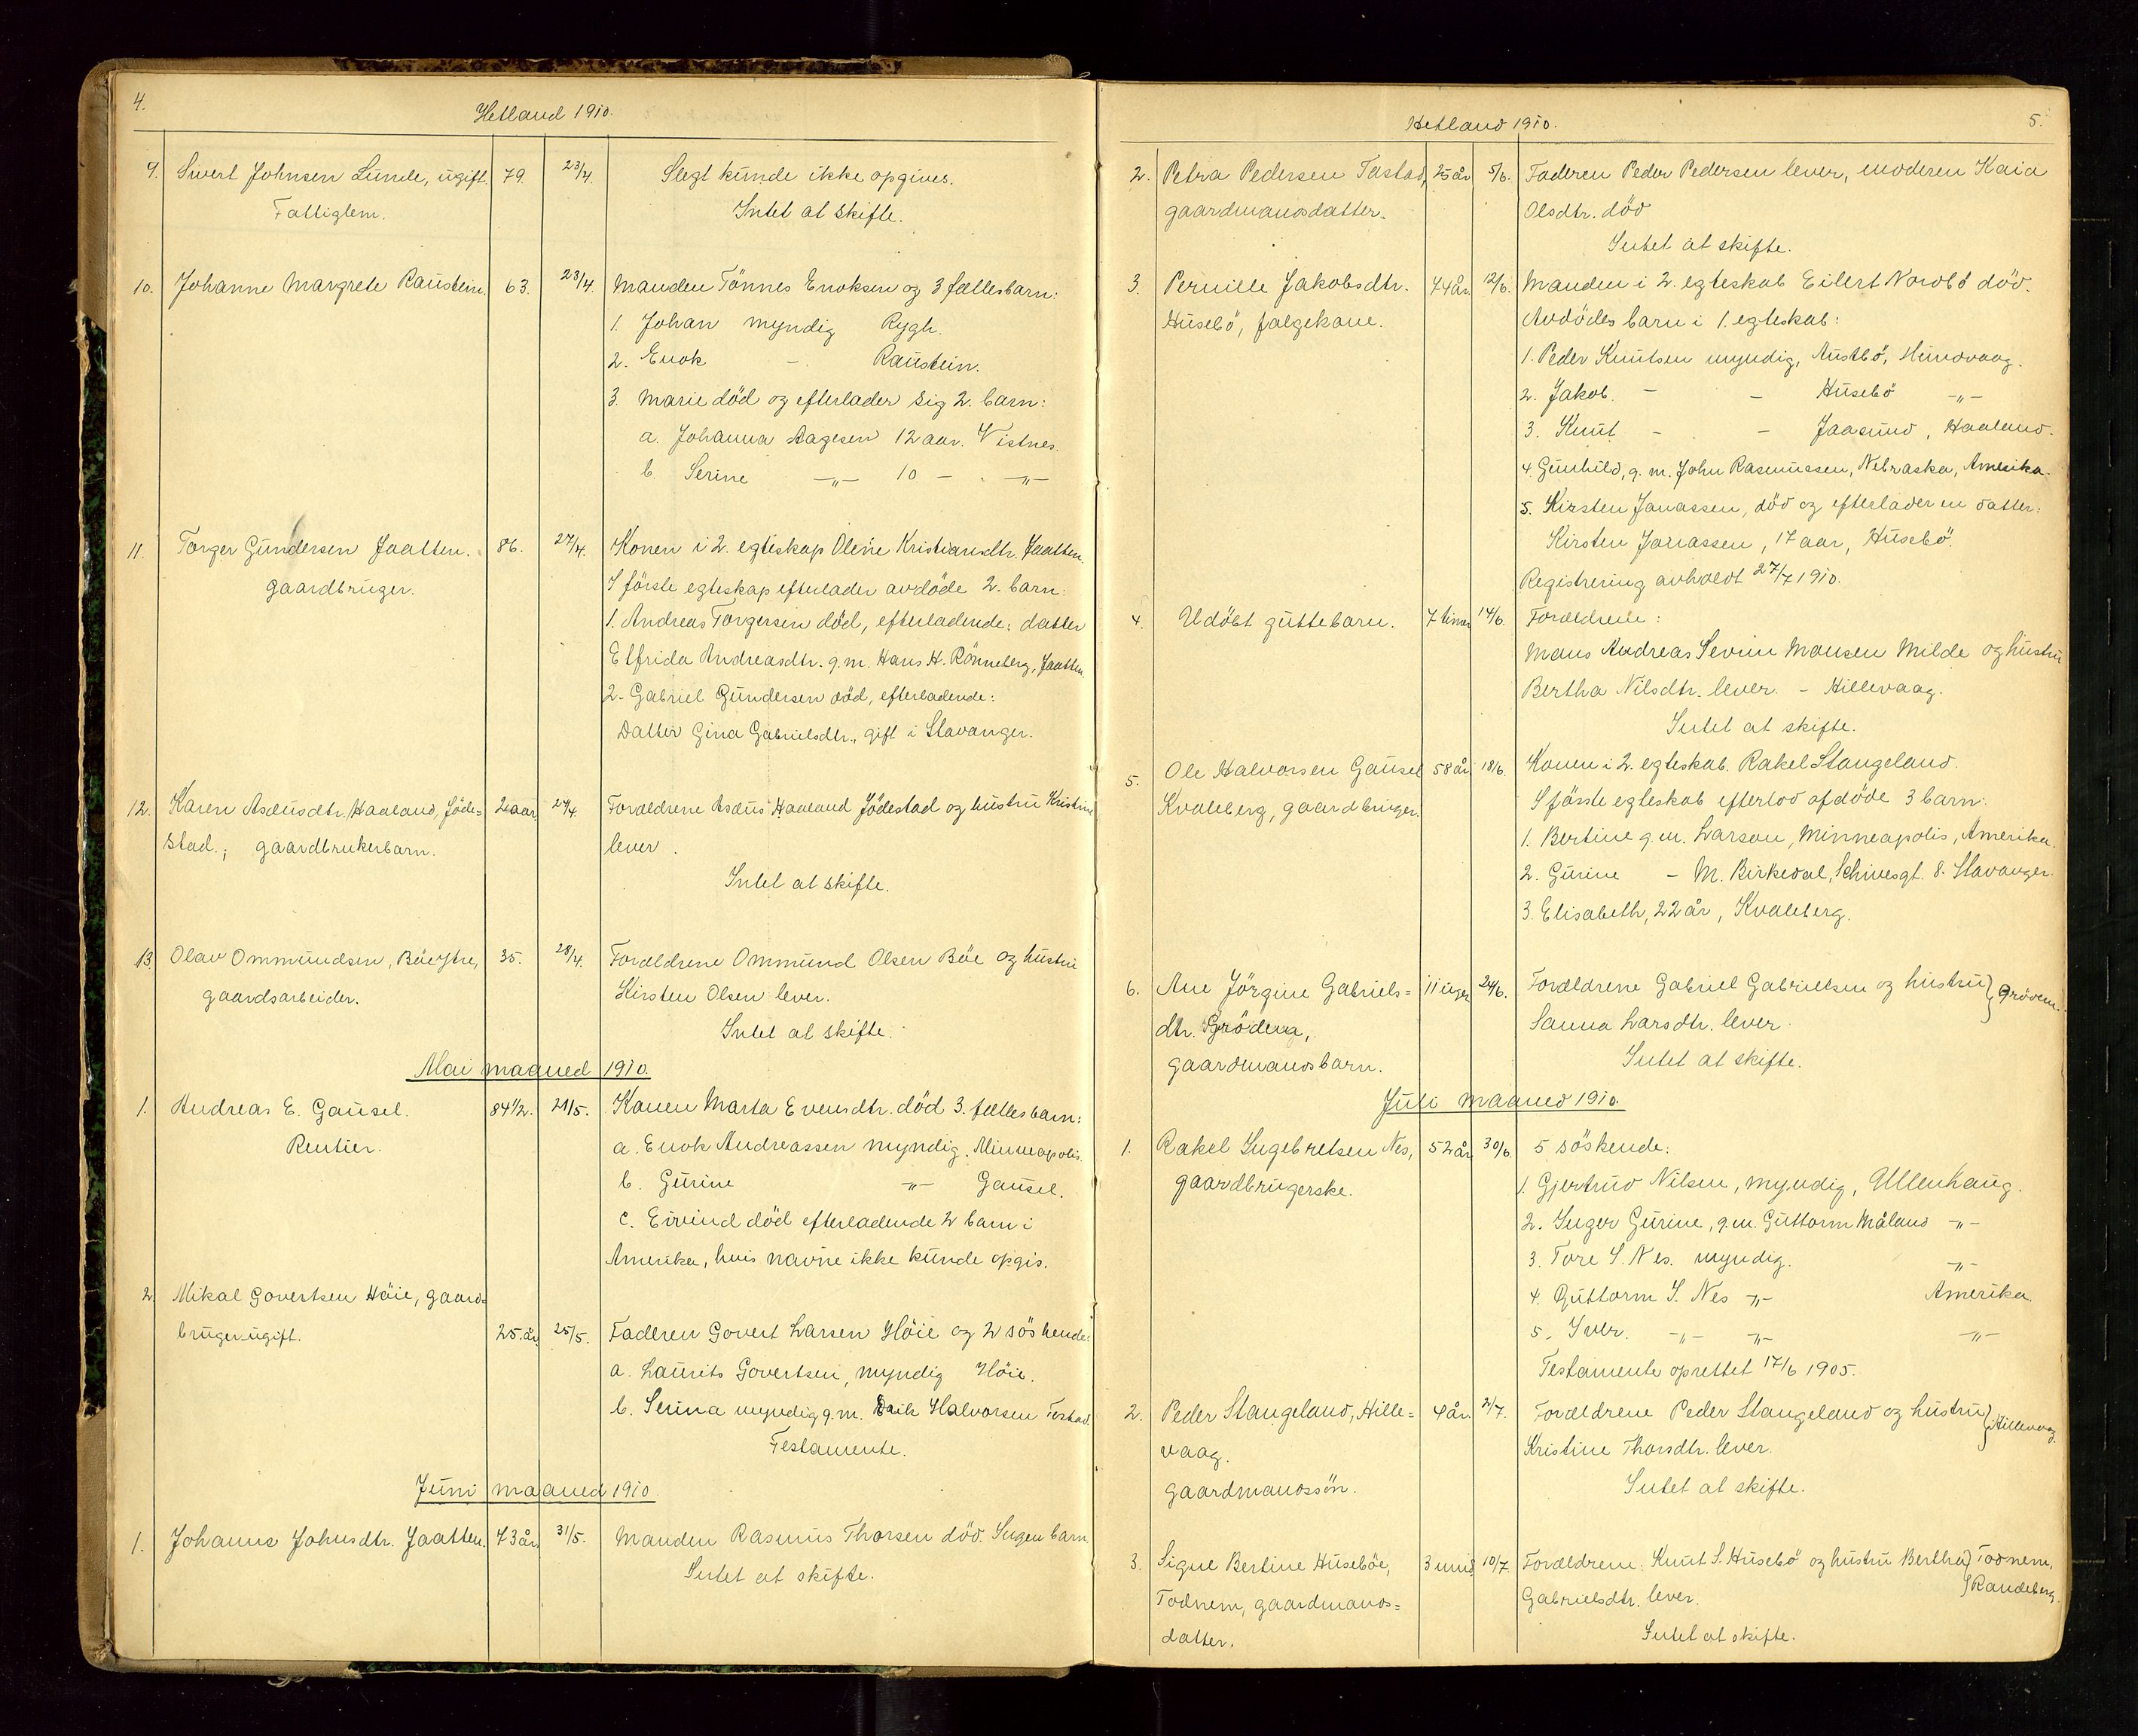 4.
Hetland 1910.
9. Sivert Johnsen Lunde, ugift. 79. 23/4. Slegt kunde ikke opgives.
Fattiglem. Intet at skifte.
10. Johanne Margrete Raustein. 63. 23/4. Manden Tönnes Enoksen og 3 fællesbarn:
1. Johan myndig Rygh.
2. Enok - Raustein.
3. Marie död og efterlader sig 2. barn:
a. Johanna Aagesen 12 aar. Vistnes.
b. Serine -"- 10 - . -"-
11. Torger Gundersen Jaatten. 86. 27/4. Konen i 2. egteskap Olene Kristiansdtr. Jaatten.
gaardbruger. I förste egteskap efterlader avdöde 2. barn:
1. Andreas Torgersen död, efterladende: datter
Elfrida Andreasdtr. g.m. Hans H. Rönneberg, Jaatten.
2. Gabriel Gundersen död, efterladende:
Datter Gina Gabrielsdtr., gift i Stavanger.
12. Karen Asæusdtr. Haaland, Jöde= 2 aar. 24/4. Forældrene Asæus Haaland Jödestad og hustru Kristine
stad.; gaardbrukerbarn. lever.
Intet at skifte.
13. Olav Ommundsen, Böe ytre, 35. 28/4. Forældrene Ommund Olsen Böe og hustru
gaardsarbeider. Kirsten Olsen lever.
Intet at skifte.
Mai maaned 1910.
1. Andreas E. Gausel. 84 1/2. 21/5. Konen Marta Evensdtr. död 3. fællesbarn:
Rentier. a. Enok Andreassen myndig. Minneapolis.
b. Gurine -"- Gausel.
c. Eivind död efterladende 2 barn i
Amerika, hvis navne ikke kunde opgis.
2. Mikal Govertsen Höie, gaard=
bruger ugift. 25. år. 25/5. Faderen Govert Larsen Höie og 2 söskende:
a. Laurits Govertsen, myndig Höie.
b. Serina myndig g.m. Erik Halvorsen Tastad.
Testamente.
Juni maaned 1910.
1. Johanne Johnsdtr. Jaatten. 73 år. 31/5. Manden Rasmus Thorsen död. Ingen barn.
Intet at skifte.
Hetland 1910. 5.
2. Petra Pedersen Tastad, 25 år 5/6. Faderen Peder Pedersen lever, moderen Kaia
gaardmansdatter. Olsdtr. död
Intet at skifte.
3. Pernille Jakobsdtr. 74 år. 12/6. Manden i 2. egteskab Eilert Nordbö död.
Husebö, følgekone. Avdödes barn i 1. egteskab:
1. Peder Knutsen myndig, Austbö, Hundvaag.
2. Jakob. - - Husebö -"-
3. Knut - - Jaasund, Haaland.
4 Gunhild, g.m. John Rasmussen, Nebraska, Amerika.
5. Kirsten Jonassen, död og efterlader en datter:
Kirsten Jonassen, 17 aar, Husebö.
Registrering avholdt 27/7 1910.
4. Udöbt guttebarn. 7 timer 14/6. Forældrene:
Mons Andreas Severin Monsen Milde og hustru
Bertha Nilsdtr. lever. - Hillevaag.
Intet at skifte.
5. Ole Halvorsen Gausel 58 år 18/6. Konen i 2. egteskab. Rakel Stangeland.
Kvaleberg, gaardbruger. I förste egteskab efterlod afdöde 3 barn:
1. Bertine g.m. Larson, Minneapolis, Amerika.
2. Gurine - M. Birkedal, Schivesgt. 8. Stavanger.
3. Elisabeth, 22 år, Kvaleberg.
6. Ane Jörgine Gabriels= 11 uger 24/6. Forældrene Gabriel Gabrielsen og hustru } Grödem.
dtr. Grödem, Sanna Larsdtr. lever.
gaardmandsbarn. Intet at skifte.
Juli maaned 1910.
1. Rakel Ingebretsen Nes, 52 år 30/6. 5 söskende:
gaardbrugerske. 1. Gjertrud Nilsen, myndig, Ullenhaug.
2. Inger Gurine, g.m. Guttorm Måland -"-
3. Tore I. Nes. myndig. -"-
4. Guttorm I. Nes -"- Amerika.
5. Ivar. -"- -"- -"-
Testamente oprettet 17/6 1905.
2. Peder Stangeland, Hille= 4 år. 2/7. Forældrene Peder Stangeland og hustru } Hillevaag.
vaag. Kristine Thorsdtr. lever.
gaardmandssön. Intet at skifte.
3. Signe Bertine Huseböe, 3 mnd 10/7. Forældrene: Knut S. Husebö og hustru Bertha } Todnem,
Todnem, gaardmands= Gabrielsdtr. lever. Randeberg.
datter. Intet at skifte.